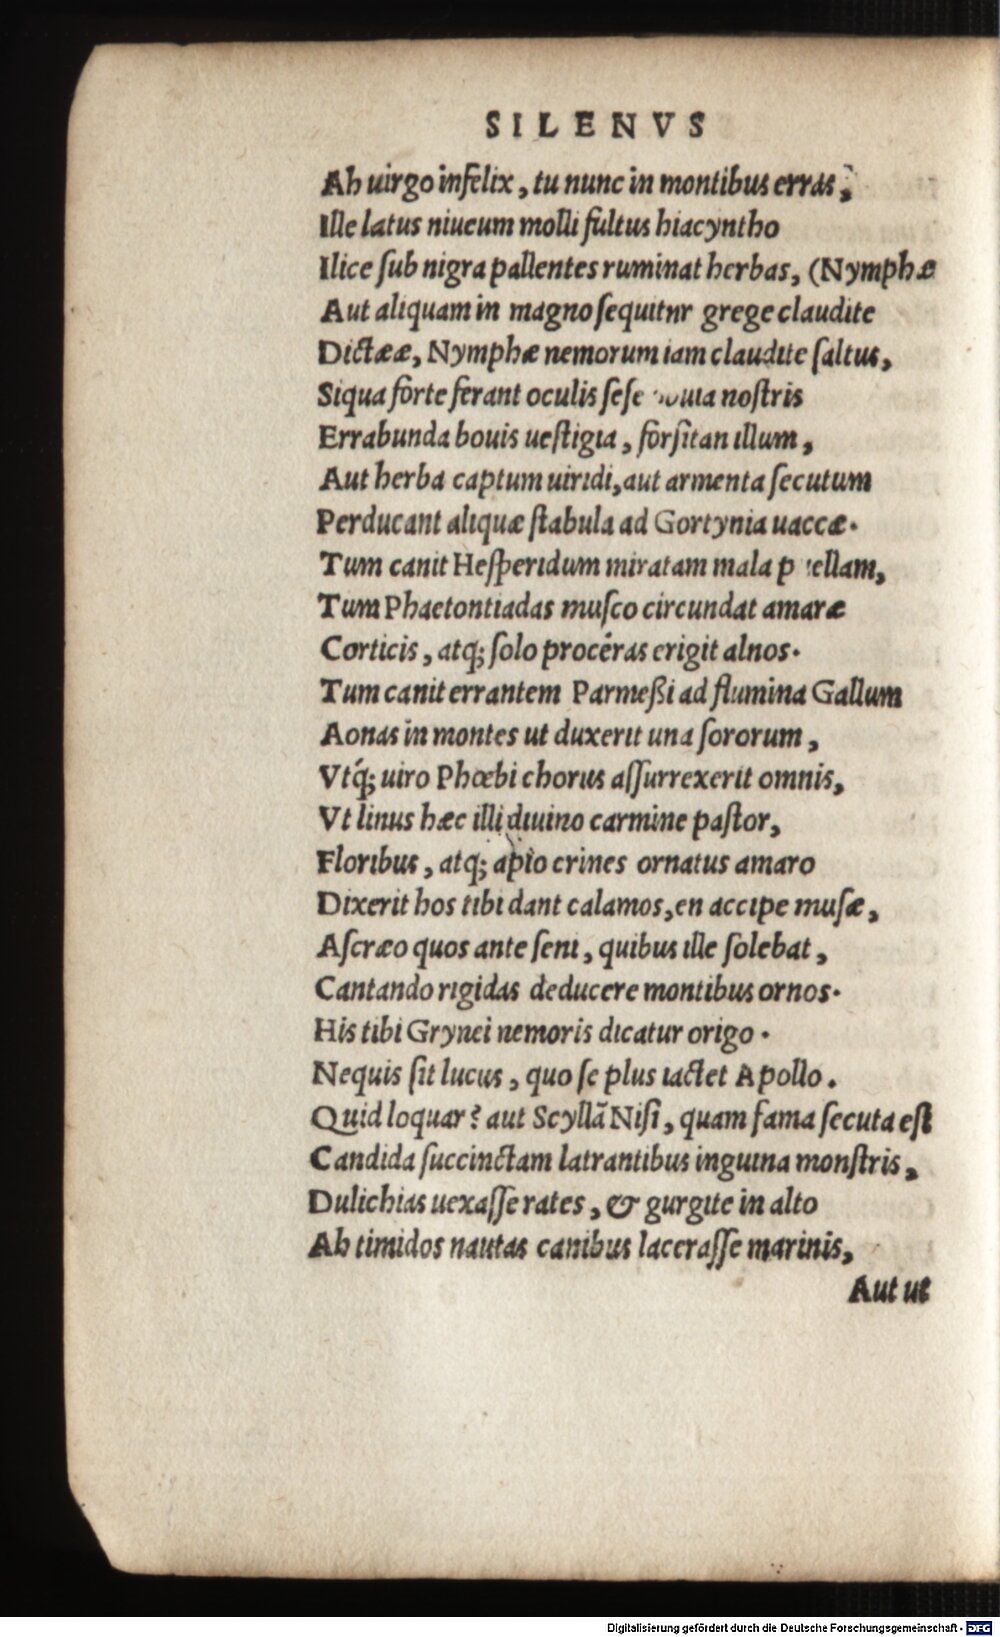 SILENVS
Ah uirgo infelix, tu nunc in montibus erras,
Ille latus niueum molli fultus hiacyntho
Ilice ſub nigra pallentes ruminat herbas, (Nymphæ
Aut aliquam in magno ſequitnr grege claudite
Dictææ, Nymphæ nemorum iam claudite ſaltus,
Siqua forte ferant oculis ſeſe noſtris
Errabunda bouis ueſtigia, forſitan illum,
Aut herba captum uiridi, aut armenta ſecutum
Perducant aliquæ ſtabula ad Gortynia uaccæ.
Tum canit Heſperidum miratam mala p ellam,
Tum Phaetontiadas muſco circundat amaræ
Corticis, atq; ſolo procéras erigit alnos.
Tum canit errantem Parmeßi ad flumina Gallum
Aonas in montes ut duxerit una ſororum,
Vtq́; uiro Phœbi chorus aſſurrexerit omnis,
Vt linus hæc illi diuino carmine paſtor,
Floribus, atq; apio crines ornatus amaro
Dixerit hos tibi dant calamos, en accipe muſæ,
Aſcræo quos ante ſeni, quibus ille ſolebat,
Cantando rigidas deducere montibus ornos.
His tibi Grynei nemoris dicatur origo.
Nequis ſit lucus, quo ſe plus iactet Apollo.
Quid loquar? aut Scyllā Niſi, quam fama ſecuta eſt
Candida ſuccinctam latrantibus inguina monſtris,
Dulichias uexaſſe rates, & gurgite in alto
Ah timidos nautas canibus laceraſſe marinis,
Aut ut
Digitalisierung gefördert durch die Deutsche Forschungsgemeinschaft - DFG